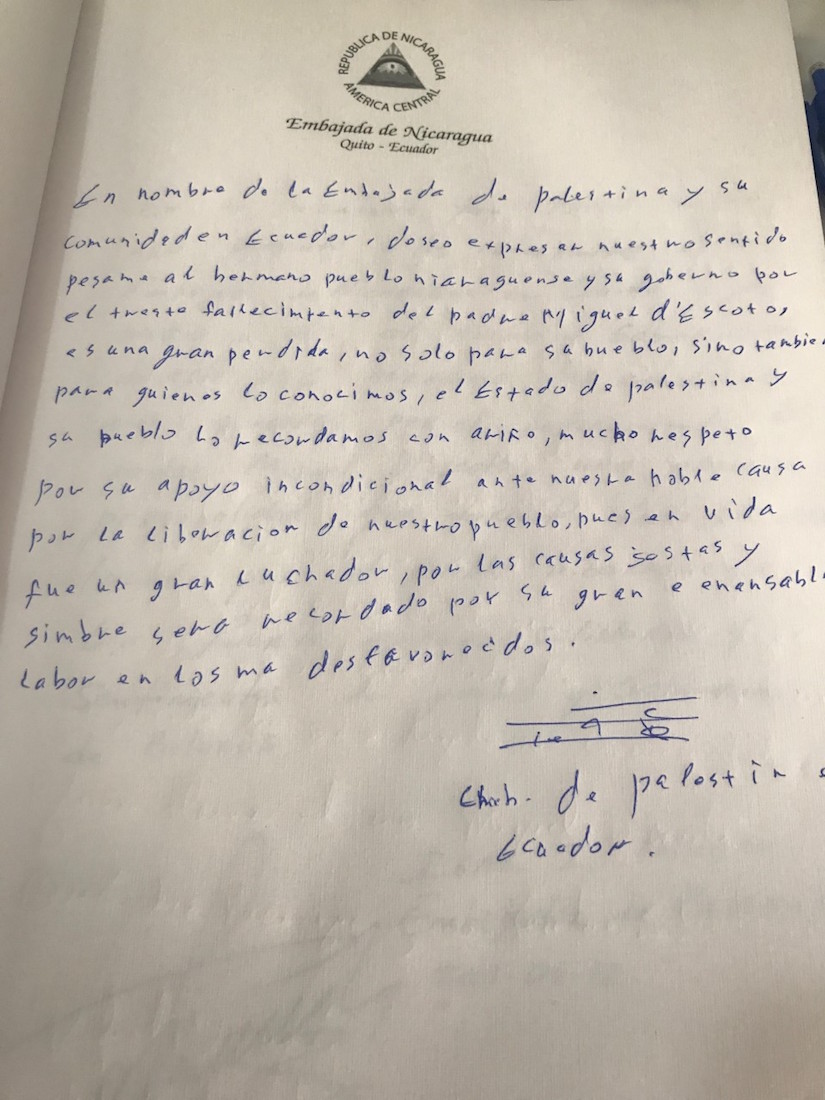 REPUBLICA DE NICARAGUA
AMERICA CENTRAL
Embajada de Nicaragua
Quito - Ecuador
En nombre de la Embajada de palestina y su
comunidad en Ecuador, deseo expresar nuestro sentido
pesame al hermano pueblo nicaraguense y su goberno por
el treste fallecimiento del padre Miguel d'Escoto,
es una gran perdida, no solo para su bueblo, sino tambie
para quienes lo conocimos, el Estado de palestina y
su pueblo lo recordamos con ariño, mucho respeto
por su apoyo incondicional ante nuestra noble causa
por la liberacion de nuestro pueblo, pues en vida
fue un gran luchador, por las causas jostas y
simbre sera recordado por su gran e enansabl
labor en los ma desfavorecidos.
de palestin
Ecuador.